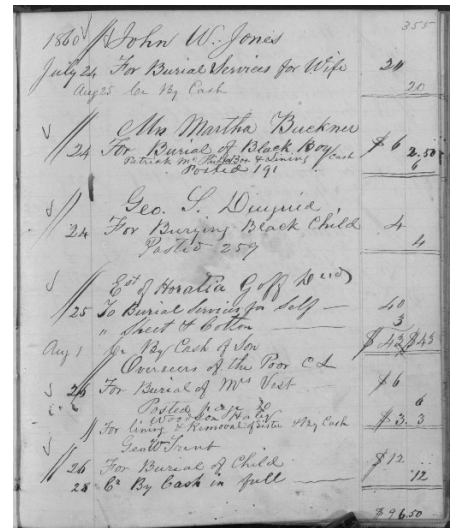 355
1860 John W. Jones
July 24 For Burial Services for Wife 20
Aug 25 Cr By Cash 20
Mrs Martha Buckner
24 For Burial of Black Boy $6 2.50
Patrick Box & Lining / Cash 6
Posted 191
Geo. S. Diuguid
24 For Burying Black Child 4
Posted 257 4
Est of Horatia Goff Decd
25 To Burial Services for Self 40
" Sheet & Cotton 3
Aug 1 Cr By Cash of Son $43 $43
Overseers of the Poor C L
26 For Burial of Mrs Vest $6
Posted 6
For lining & Removal Sister & By Cash $3. 3
Geo W Trent
26 For Burial of Child $12
28 Cr By Cash in full 12
$96.50